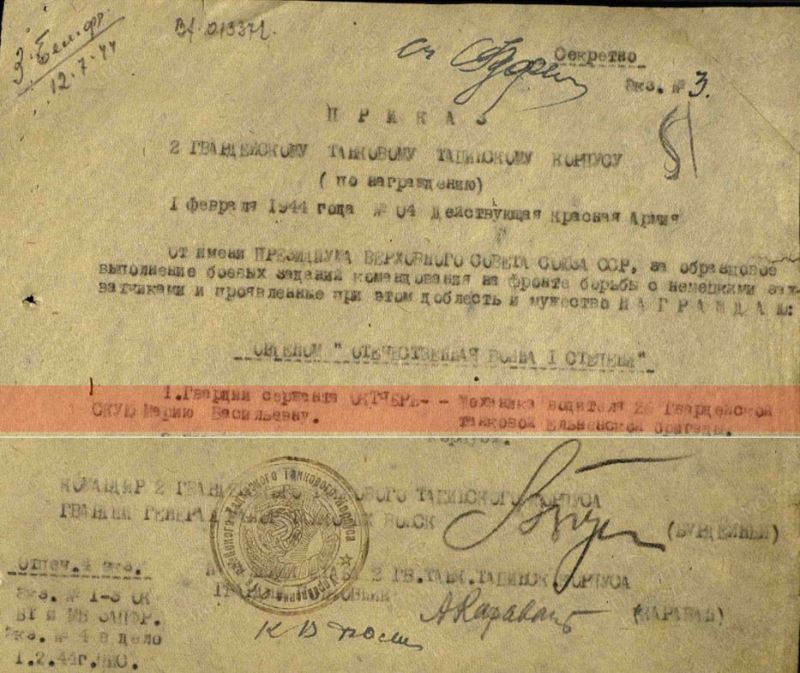 3. Бел. фр.
12.7.44
Секретно
Экз. № 3.
П Р И К А З
2 ГВАРДЕЙСКОМУ ТАНКОВОМУ ТАЦИНСКОМУ КОРПУСУ
( по награждению)
I февраля 1944 года № 04 Действующая Красная Армия
От имени ПРЕЗИДИУМА ВЕРХОВНОГО СОВЕТА СОЮЗА ССР, за образцовое
выполнение боевых заданий командования на фронте борьбы с немецкими зах-
ватчиками и проявленные при этом доблесть и мужество Н А Г Р А Ж Д А Ю:
ОРДЕНОМ " ОТЕЧЕСТВЕННАЯ ВОЙНА I СТЕПЕНИ"
1.Гвардии сержанта ОКТЯБРЬ- - Механика водителя 26 Гвардейской
СКУЮ Марию Васильевну. танковой Ельненской бригады.
корпуса.
КОМАНДИР 2 ГВАРДЕЙСКОГО ТАНКОВОГО ТАЦИНСКОГО КОРПУСА
ГВАРДИИ ГЕНЕРАЛ ВОЙСК (БУРДЕЙНЫЙ)
Отпеч. 4 экз. ШТАБА 2 ГВ.ТАНК.ТАЦИНСК.КОРПУСА
Экз. № 1-3 ОК А Караван (КАРАВАН)
БТ и МВ ЗАПФР.
Экз. № 4 в дело
1.2.44г.